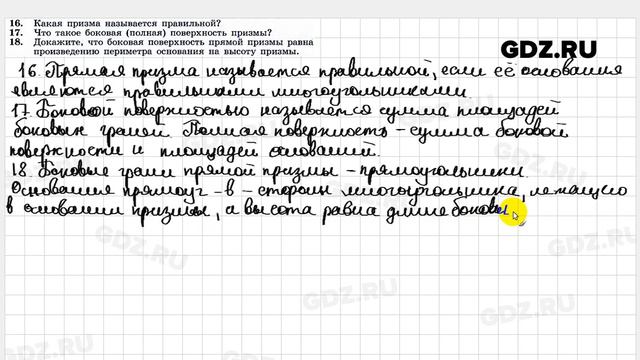 16. Какая призма называется правильной?
17. Что такое боковая (полная) поверхность призмы?
18. Докажите, что боковая поверхность прямой призмы равна
произведению периметра основания на высоту призмы.
GDZ.RU
16. Прямая призма называется правильной, если её основания
являются правильными многоугольниками.
17. Боковой поверхностью называется сумма площадей
боковых граней. Полная поверхность – сумма боковой
поверхности и площадей оснований.
18. Боковые грани прямой призмы – прямоугольники.
Основания прямоуг-в – стороны многоугольника, лежащего
в основании призмы, а высота равна длине боковы
GDZ.RU
GDZ.RU
GDZ.RU
GDZ.RU